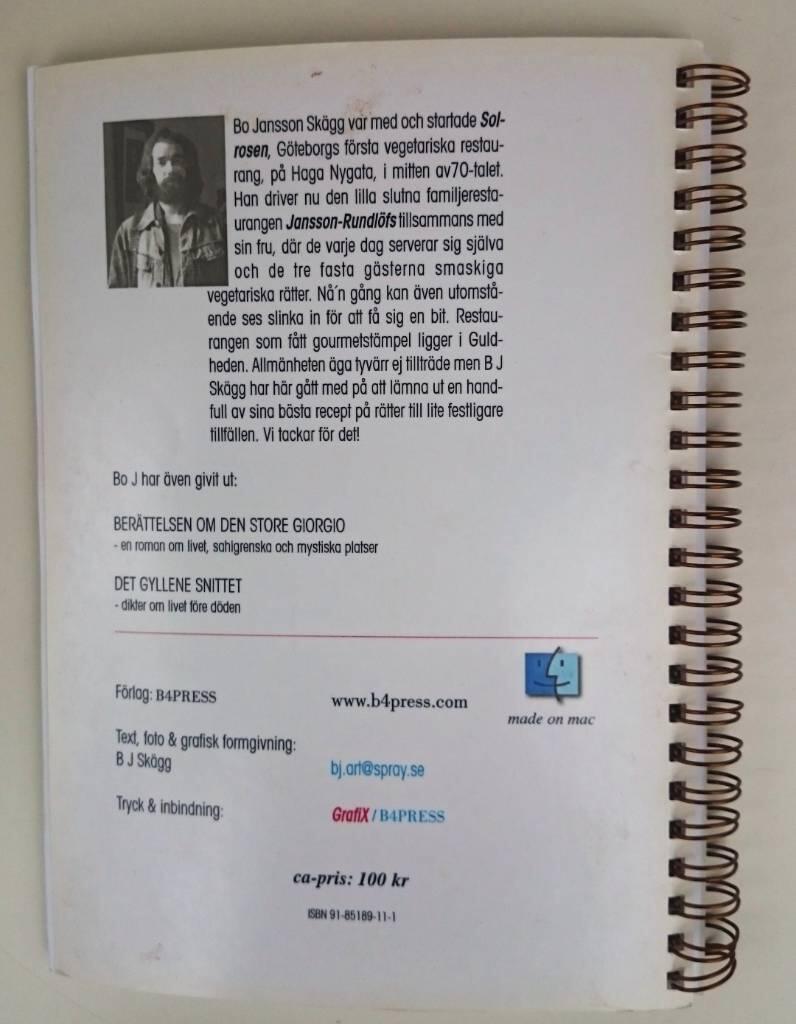 Bo Jansson Skägg var med och startade Sol-
rosen, Göteborgs första vegetariska restau-
rang, på Haga Nygata, i mitten av70-talet.
Han driver nu den lilla slutna familjeresta-
urangen Jansson-Rundlöfs tillsammans med
sin fru, där de varje dag serverar sig själva
och de tre fasta gästerna smaskiga
vegetariska rätter. Nå´n gång kan även utomstå-
ende ses slinka in för att få sig en bit. Restau-
rangen som fått gourmetstämpel ligger i Guld-
heden. Allmänheten äga tyvärr ej tillträde men B J
Skägg har här gått med på att lämna ut en hand-
full av sina bästa recept på rätter till lite festligare
tillfällen. Vi tackar för det!
Bo J har även givit ut:
BERÄTTELSEN OM DEN STORE GIORGIO
- en roman om livet, sahlgrenska och mystiska platser
DET GYLLENE SNITTET
- dikter om livet före döden
made on mac
Förlag: B4PRESS www.b4press.com
Text, foto & grafisk formgivning:
B J Skägg bj.art@spray.se
Tryck & inbindning: GrafiX / B4PRESS
ca-pris: 100 kr
ISBN 91-85189-11-1